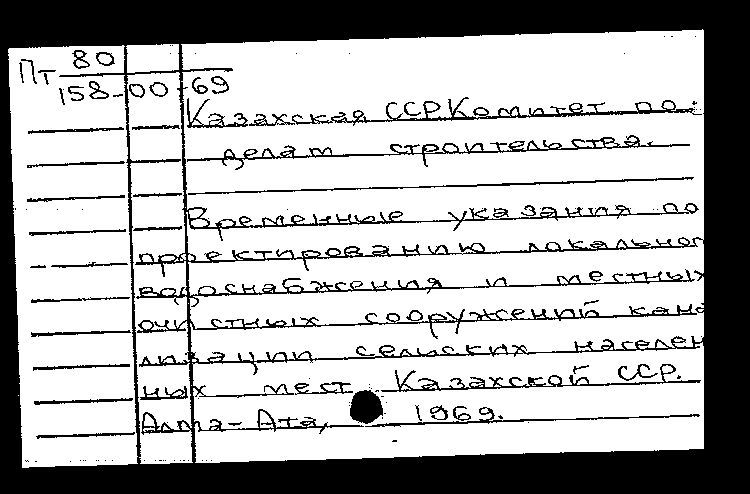 Пт 80
158-00-69
Казахская ССР Комитет по
делам строительства.
Временные указания по
проектированию локальног
водоснабжения и местных
очистных сооружений кана
лизации сельских населен
ных мест Казахской ССР.
Алма-Ата, 1969.